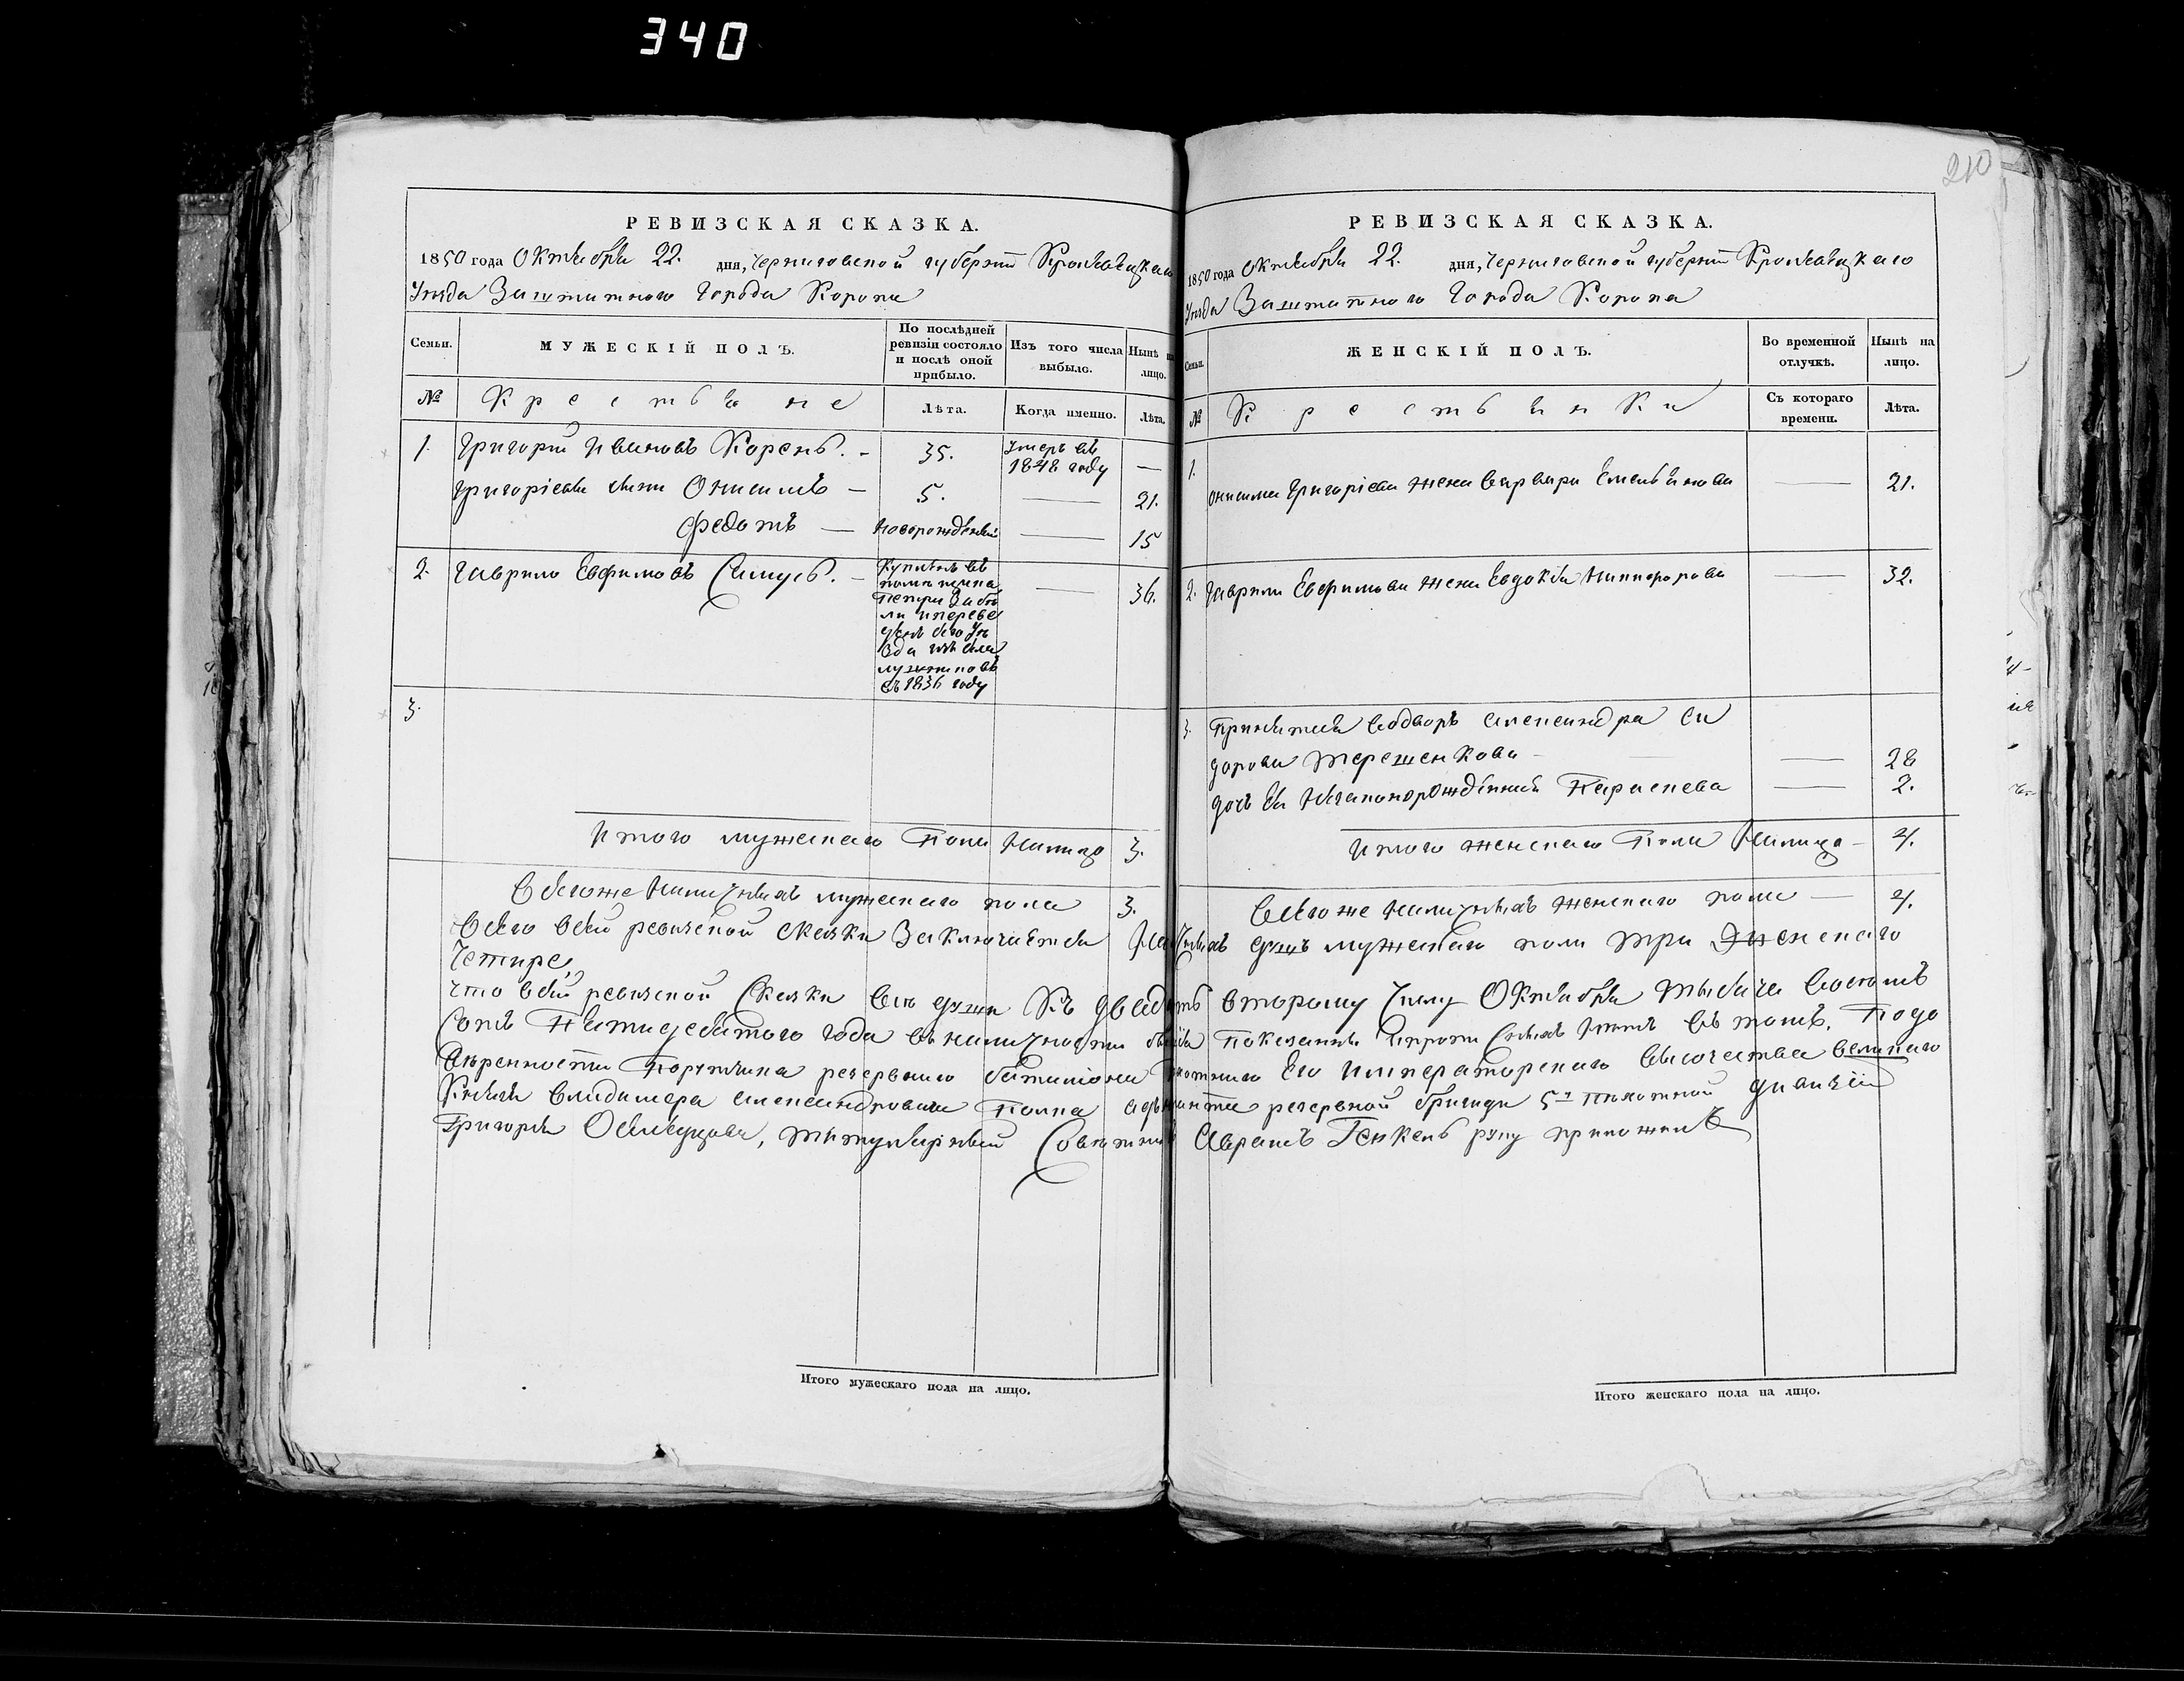 340
210
РЕВИЗСКАЯ СКАЗКА.
1850 года Октября 22. дня, Черниговской губерніи Кролевецкаго
Уезда Заштатного Города Коропа
Семьи. МУЖЕСКІЙ ПОЛЪ. По послѣдней ревизіи состояло и послѣ оной прибыло. Изъ того числа выбыло. Нынѣ на лицо.
№ Крестьяне Лѣта. Когда именно. Лѣта.
1. Григорій Ивановъ Корень. - 35. Умеръ въ 1848 году —
Григоріевы сыны Онисимъ — 5. — 21.
Федотъ — новорожденный — 15
2. Гаврило Евфимовъ Самусь. — Купленъ въ
Петра Забѣ
ла и переве
денъ сего уѣ
зда
съ 1836 году — 36.
3.
Итого мужескаго пола налицо 3.
Всегоже наличныхъ мужескаго пола 3.
РЕВИЗСКАЯ СКАЗКА.
1850 года Октября 22. дня, Черниговской губерніи Кролевецкаго
Уезда Заштатного Города Коропа
Семьи. ЖЕНСКІЙ ПОЛЪ. Во временной отлучкѣ. Нынѣ на лицо.
№ Крестьянки Съ котораго времени. Лѣта.
1. Онисима Григоріева жена Варвара Емельянова — 21.
2. Гаврила Евфимова жена Евдокія Никифорова — 32.
3. Принятая водворъ Александра Си
дорова Терешенкова — 28
дочь ея незаконнорожденная Параскева — 2.
Итого женскаго пола налицо — 4.
Всегоже наличныхъ женскаго пола — 4.
Всего всей ревизской сказки заключается наличныхъ душъ мужескаго пола три женскаго
четыре,
что всей ревизской сказки все души къ двадцать второму числу Октября тысяча восемь
сотъ пятидесятого года въ наличности показаны и противъ лѣтъ въ томъ. По до
вѣренности Поручика резервнаго баталіона пѣхотнаго Его Императорскаго Высочества Великаго
Князя Владимера Александровича полка адъютанта резервной бригады 5й пѣхотной дивизіи
Григорія титулярный Совѣтникъ Аврамъ Генкель руку приложилъ
Итого мужескаго пола на лицо.
Итого женскаго пола на лицо.